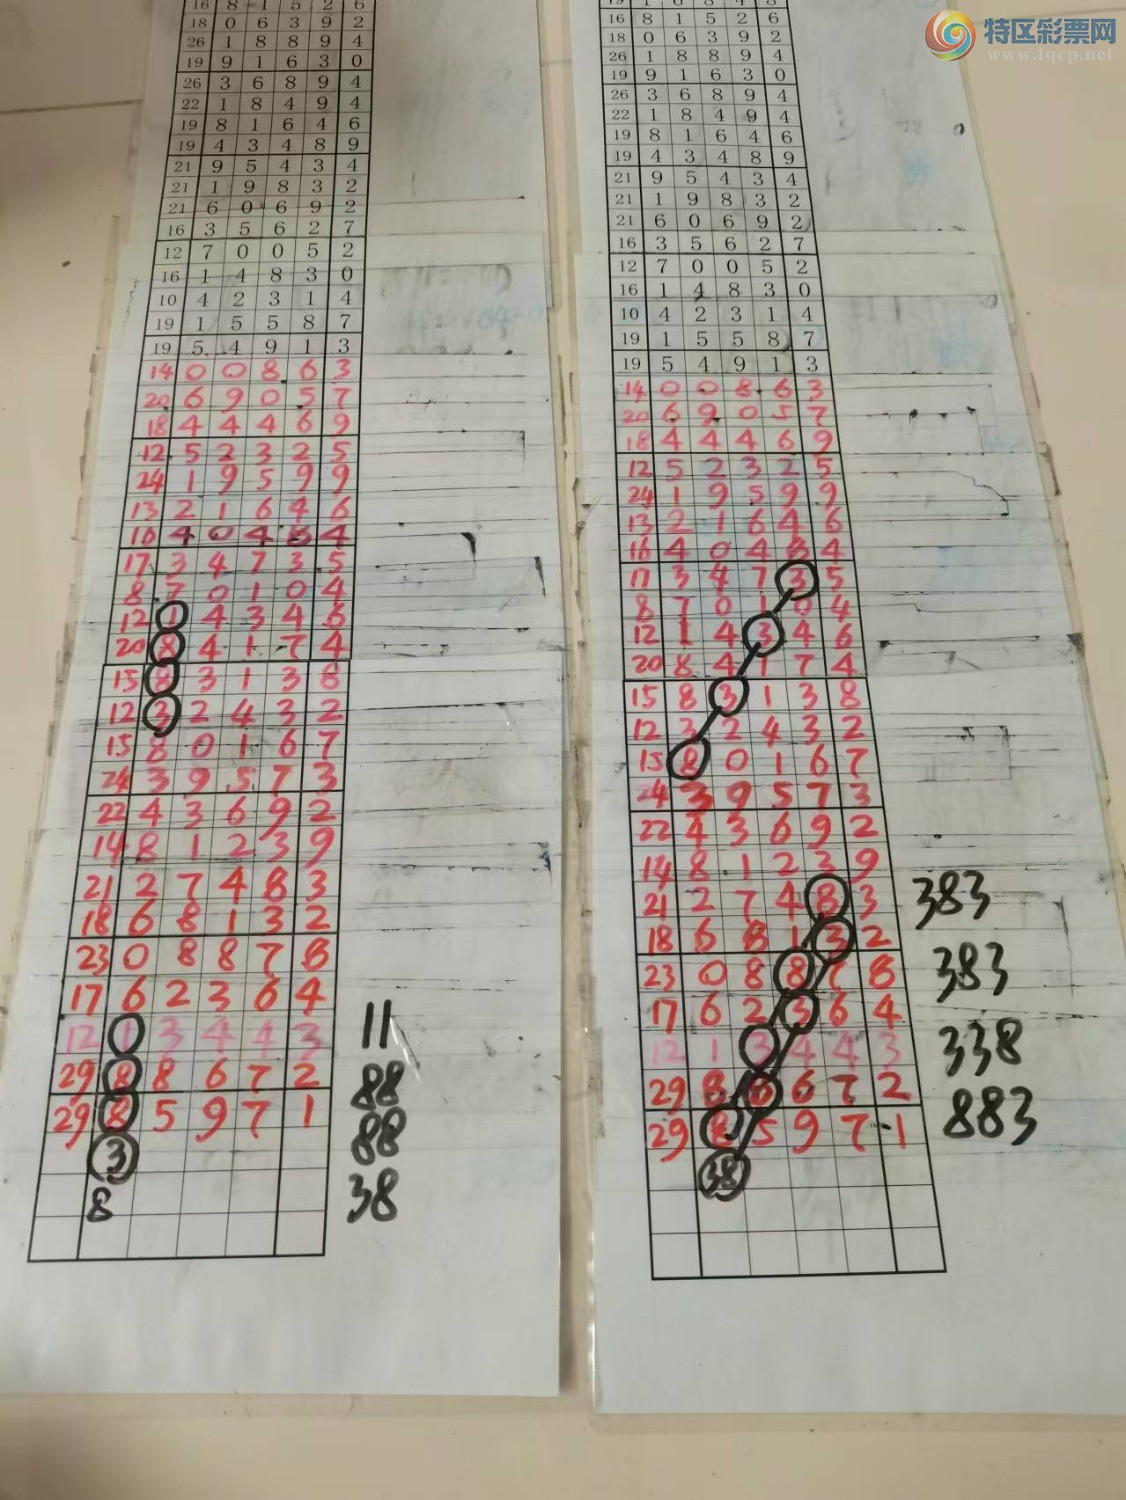 特区彩票网
www.tqcp.net
16 8 1 5 2 6
18 0 6 3 9 2
26 1 8 8 9 4
19 9 1 6 3 0
26 3 6 8 9 4
22 1 8 4 9 4
19 8 1 6 4 6
19 4 3 4 8 9
21 9 5 4 3 4
21 1 9 8 3 2
21 6 0 6 9 2
16 3 5 6 2 7
12 7 0 0 5 2
16 1 4 8 3 0
10 4 2 3 1 4
19 1 5 5 8 7
19 5 4 9 1 3
14 0 0 8 6 3
20 6 9 0 5 7
18 4 4 4 6 9
12 5 2 3 2 5
24 1 9 5 9 9
13 2 1 6 4 6
16 4 0 4 8 4
17 3 4 7 3 5
8 7 0 1 0 4
12 1 4 3 4 6
20 8 4 1 7 4
15 8 3 1 3 8
12 3 2 4 3 2
15 8 0 1 6 7
24 3 9 5 7 3
22 4 3 6 9 2
14 8 1 2 3 9
21 2 7 4 8 3
18 6 8 1 3 2
23 0 8 8 7 8
17 6 2 3 6 4
12 1 3 4 4 3 11
29 8 8 6 7 2 88
29 8 5 9 7 1 88
3
8 38
16 8 1 5 2 6
18 0 6 3 9 2
26 1 8 8 9 4
19 9 1 6 3 0
26 3 6 8 9 4
22 1 8 4 9 4
19 8 1 6 4 6
19 4 3 4 8 9
21 9 5 4 3 4
21 1 9 8 3 2
21 6 0 6 9 2
16 3 5 6 2 7
12 7 0 0 5 2
16 1 4 8 3 0
10 4 2 3 1 4
19 1 5 5 8 7
19 5 4 9 1 3
14 0 0 8 6 3
20 6 9 0 5 7
18 4 4 4 6 9
12 5 2 3 2 5
24 1 9 5 9 9
13 2 1 6 4 6
16 4 0 4 8 4
17 3 4 7 3 5
8 7 0 1 0 4
12 1 4 3 4 6
20 8 4 1 7 4
15 8 3 1 3 8
12 3 2 4 3 2
15 8 0 1 6 7
24 3 9 5 7 3
22 4 3 6 9 2
14 8 1 2 3 9
21 2 7 4 8 3 383
18 6 8 1 3 2
23 0 8 8 7 8 383
17 6 2 3 6 4
12 1 3 4 4 3 338
29 8 8 6 7 2
29 8 5 9 7 1 883
38